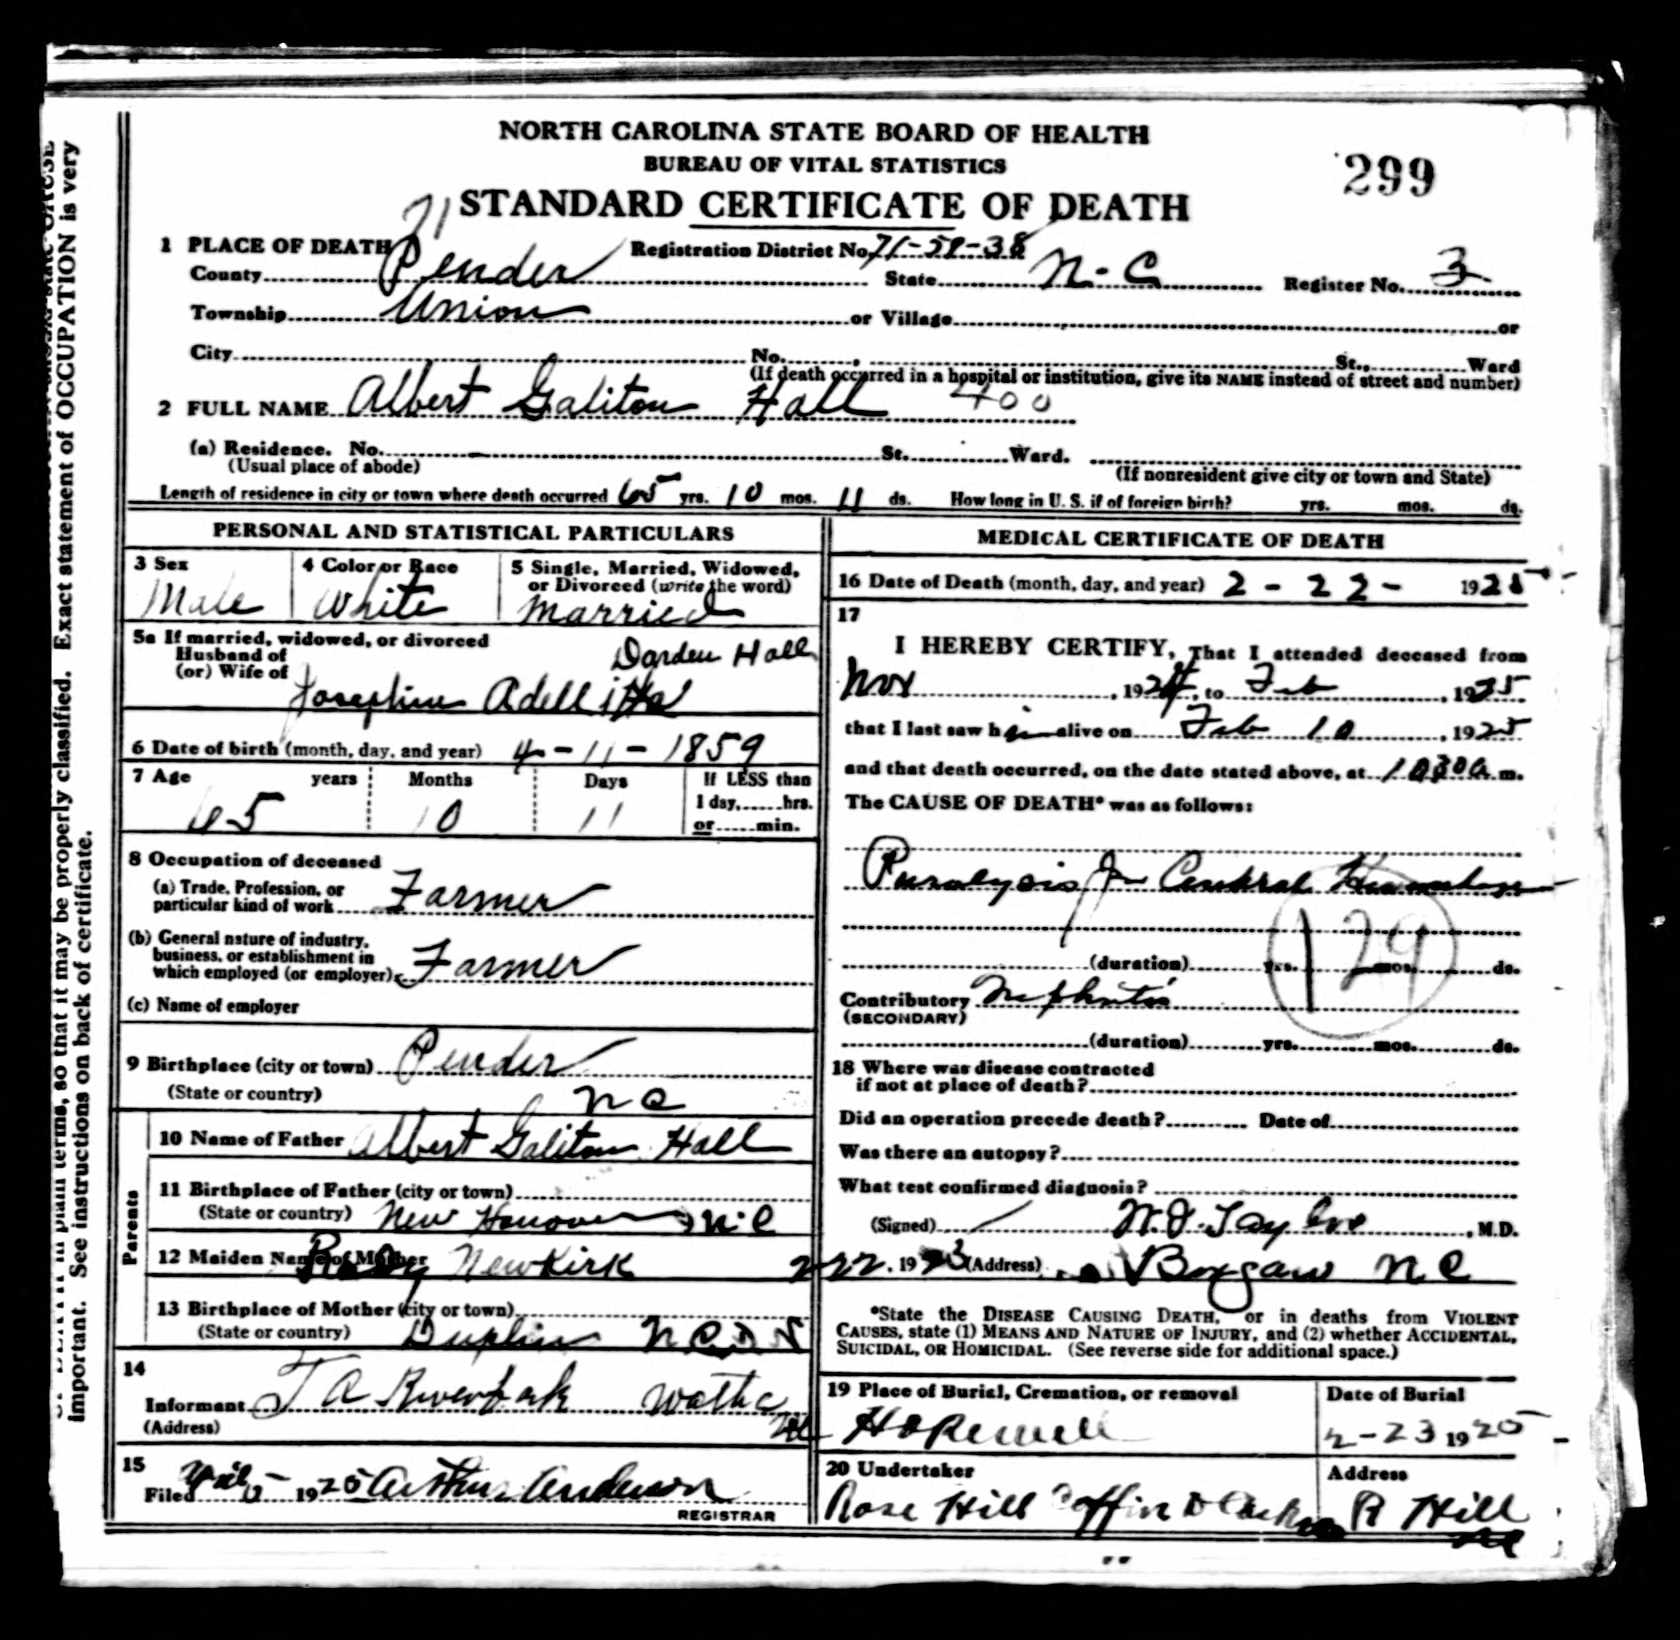 NORTH CAROLINA STATE BOARD OF HEALTH
BUREAU OF VITAL STATISTICS
299
STANDARD CERTIFICATE OF DEATH
71
1 PLACE OF DEATH Registration District No. 71-59-38
County Pender State N.C Register No. 3
Township Union or Village or
City No. St., Ward
(If death occurred in a hospital or institution, give its NAME instead of street and number)
2 FULL NAME Albert Galiton Hall 400
(a) Residence. No. St. Ward.
(Usual place of abode) (If nonresident give city or town and State)
Length of residence in city or town where death occurred 65 yrs. 10 mos. 11 ds. How long in U. S. if of foreign birth? yrs. mos. ds.
PERSONAL AND STATISTICAL PARTICULARS
3 Sex 4 Color or Race 5 Single, Married, Widowed,
or Divorced (write the word)
Male White Married
5a If married, widowed, or divorced
Husband of Darden Hall
(or) Wife of Josephine
6 Date of birth (month, day, and year) 4-11-1859
7 Age years Months Days If LESS than
1 day, hrs.
or min.
65 10 11
8 Occupation of deceased
(a) Trade, Profession, or
particular kind of work Farmer
(b) General nature of industry,
business, or establishment in
which employed (or employer) Farmer
(c) Name of employer
9 Birthplace (city or town) Pender
(State or country) N C
Parents
10 Name of Father Albert Galiton Hall
11 Birthplace of Father (city or town)
(State or country) New Hanover N.C
12 Maiden Name of Mother Newkirk
13 Birthplace of Mother (city or town)
(State or country) Duplin N C
14
Informant T A Rivenbark Watha
(Address) NC
15
Filed 1925 Arthur Anderson
REGISTRAR
MEDICAL CERTIFICATE OF DEATH
16 Date of Death (month, day, and year) 2-22- 1925
17
I HEREBY CERTIFY, That I attended deceased from
Nov , 1924, to Feb , 1925
that I last saw him alive on Feb 10 , 1925
and that death occurred, on the date stated above, at 1030a m.
The CAUSE OF DEATH* was as follows:
Paralysis
129
(duration) yrs. mos. ds.
Contributory Nephritis
(SECONDARY)
(duration) yrs. mos. ds.
18 Where was disease contracted
if not at place of death?
Did an operation precede death? Date of
Was there an autopsy?
What test confirmed diagnosis?
(Signed) Taylor , M.D.
222, 19 (Address) Burgaw N C
*State the DISEASE CAUSING DEATH, or in deaths from VIOLENT
CAUSES, state (1) MEANS AND NATURE OF INJURY, and (2) whether ACCIDENTAL,
SUICIDAL, OR HOMICIDAL. (See reverse side for additional space.)
19 Place of Burial, Cremation, or removal Date of Burial
Hopewell 2-23 1925
20 Undertaker Address
Rose Hill Coffin R Hill
NC
in plain terms, so that it may be properly classified. Exact statement of OCCUPATION is very
important. See instructions on back of certificate.